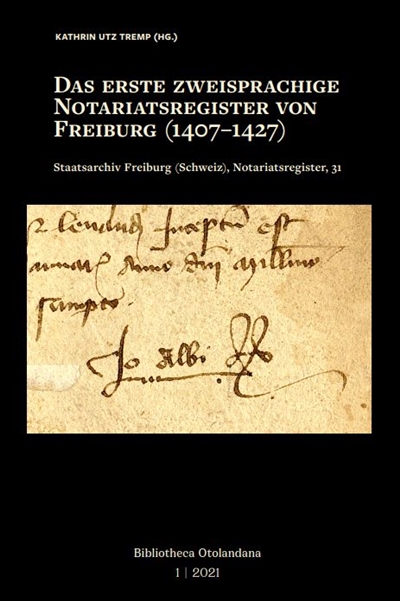 KATHRIN UTZ TREMP (HG.)
DAS ERSTE ZWEISPRACHIGE
NOTARIATSREGISTER VON
FREIBURG (1407–1427)
Staatsarchiv Freiburg (Schweiz), Notariatsregister, 31
est
Anno
Jo Albi
Bibliotheca Otolandana
1 | 2021